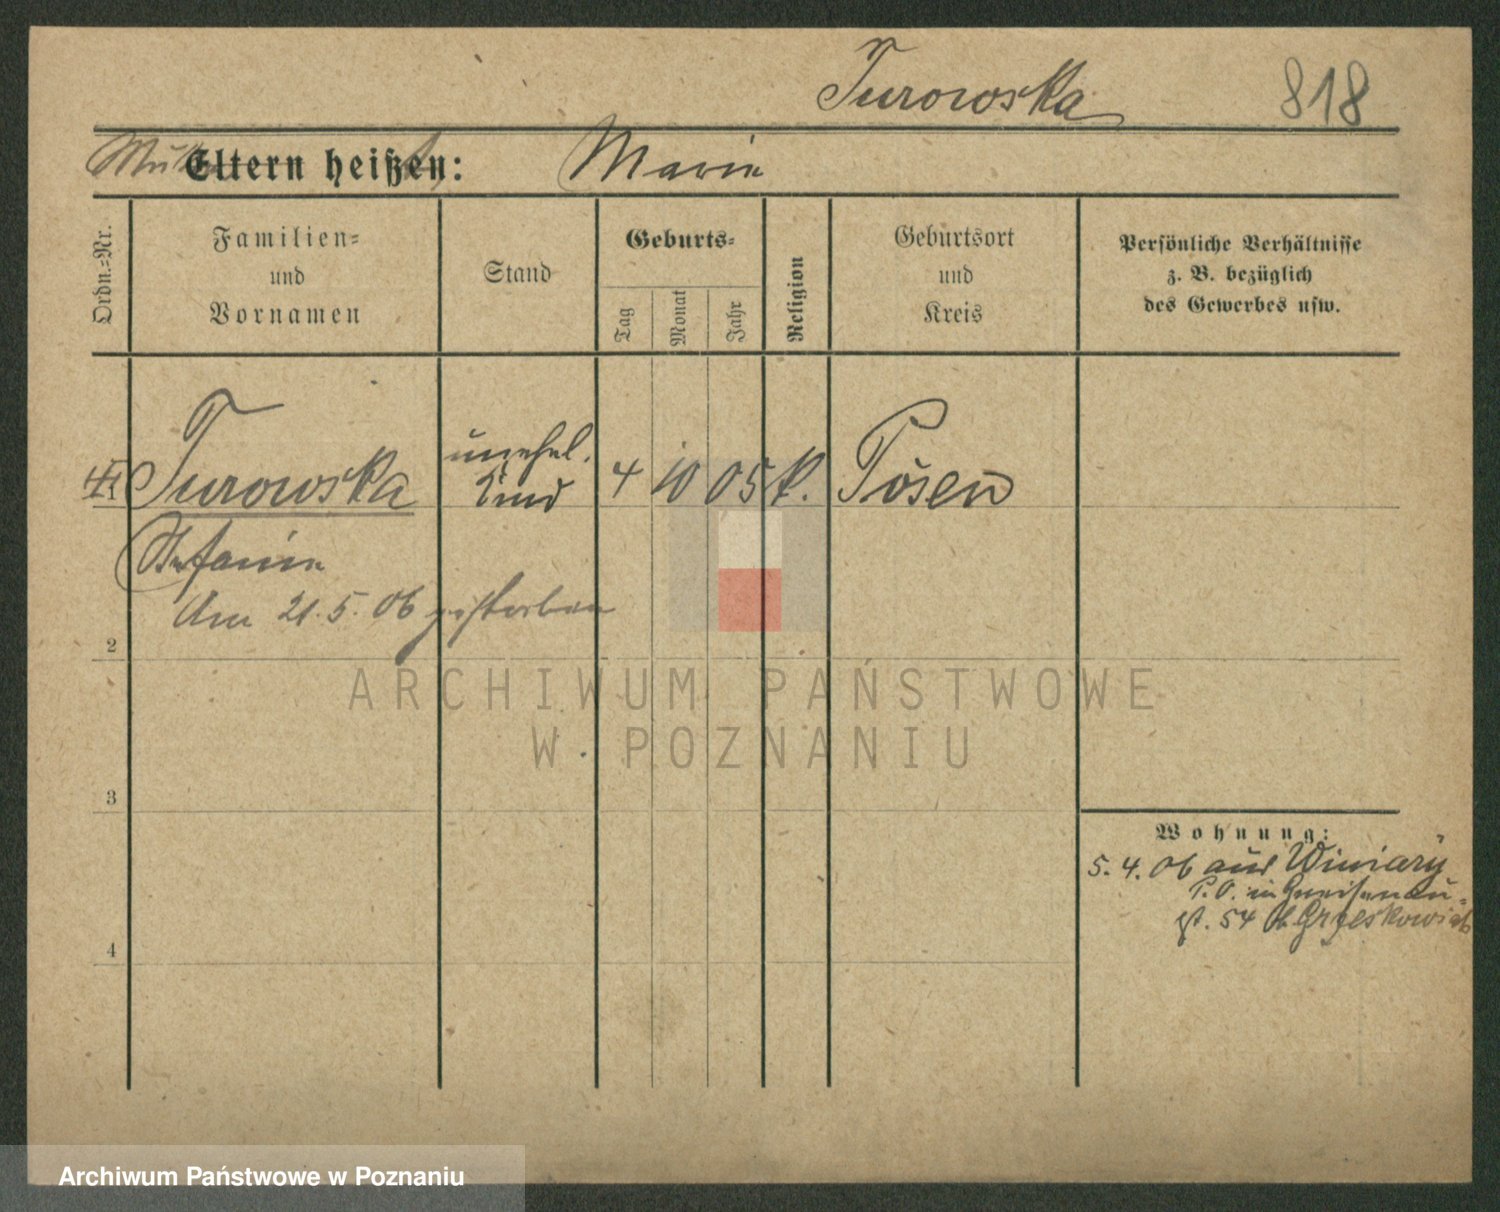 Turowska 818
Mutter
Eltern heißen: Marie
Ordn.=Nr.
Familien=
und
Vornamen
Stand
Geburts=
Tag
Monat
Jahr
Religion
Geburtsort
und
Kreis
Persönliche Verhältnisse
z. B. bezüglich
des Gewerbes usw.
1 Turowska unehel. Kind 4 10 05 k. Posen
Stefanie
Am 21.5.06 gestorben
2
3
4
Wohnung:
5.4.06 aus Winiary
P.O. in Gneisenau=
st. 54 b. Grzeskowiak
ARCHIWUM PAŃSTWOWE
W POZNANIU
Archiwum Państwowe w Poznaniu